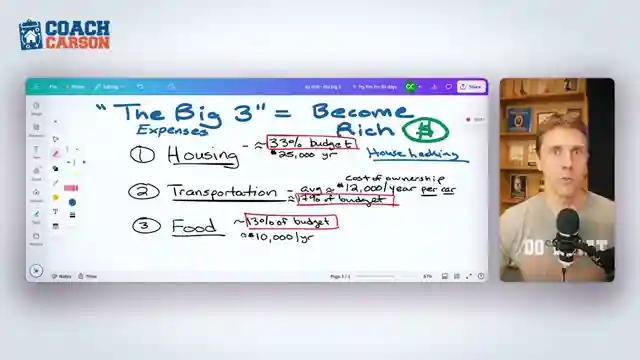 COACH
CARSON
File
Editing
Share
"The Big 3" = Become
Expenses
Rich $
① Housing - ≈ 33% budget
≈ $25,000 yr
House hacking
cost of ownership
② Transportation - avg ≈ $12,000/year per car
≈ 17% of budget
③ Food ~ 13% of budget
≈ $10,000/yr
Notes
Timer
DO